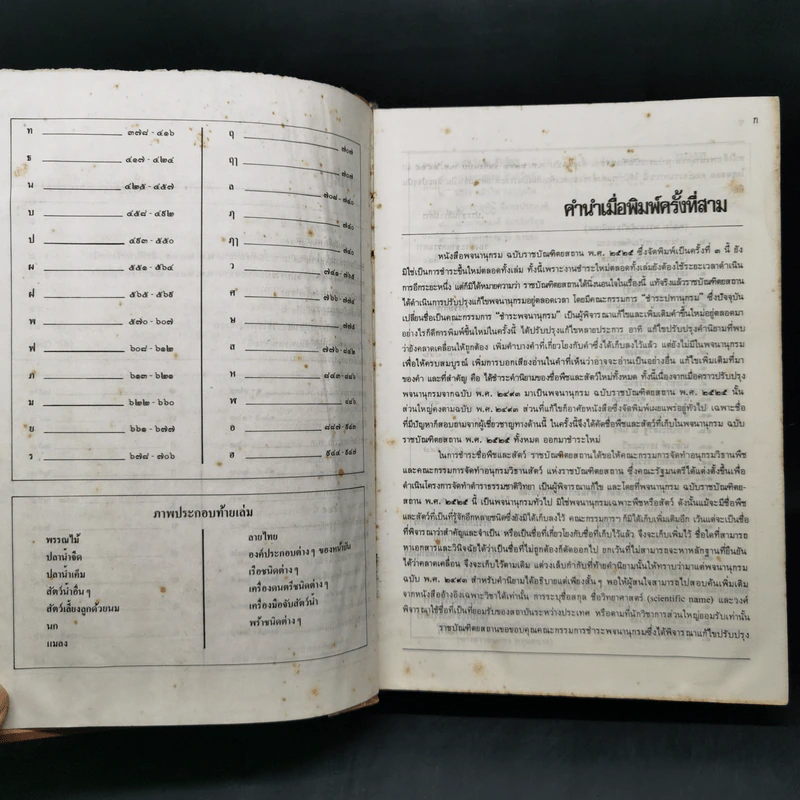 ท ๓๗๘ - ๔๑๖
ธ ๔๑๗ - ๔๒๔
น ๔๒๕ - ๔๕๗
บ ๔๕๘ - ๔๙๒
ป ๔๙๓ - ๕๕๐
ผ ๕๕๑ - ๕๖๔
ฝ ๕๖๕ - ๕๖๙
พ ๕๗๐ - ๖๐๗
ฟ ๖๐๘ - ๖๑๒
ภ ๖๑๓ - ๖๒๑
ม ๖๒๒ - ๖๖๐
ย ๖๖๑ - ๖๗๗
ร ๖๗๘ - ๗๐๖
ฤ ๗๐๗
ฤๅ ๗๐๗
ล ๗๐๘ - ๗๔๐
ฦ ๗๔๐
ฦๅ ๗๔๐
ว ๗๔๑ - ๗๖๕
ศ ๗๖๖ - ๗๗๔
ษ ๗๗๕
ส
ห
ฬ
อ
ฮ
ภาพประกอบท้ายเล่ม
พรรณไม้
ปลาน้ำจืด
ปลาน้ำเค็ม
สัตว์น้ำอื่น ๆ
สัตว์เลี้ยงลูกด้วยนม
นก
แมลง
ลายไทย
องค์ประกอบต่าง ๆ ของหน้าบัน
เรือชนิดต่าง ๆ
เครื่องดนตรีชนิดต่าง ๆ
เครื่องมือจับสัตว์น้ำ
พร้าชนิดต่าง ๆ
ก
คำนำเมื่อพิมพ์ครั้งที่สาม
หนังสือพจนานุกรม ฉบับราชบัณฑิตยสถาน พ.ศ. ๒๕๒๕ ซึ่งจัดพิมพ์เป็นครั้งที่ ๓ นี้ ยัง
มิใช่เป็นการชำระขึ้นใหม่ตลอดทั้งเล่ม ทั้งนี้เพราะงานชำระใหม่ตลอดทั้งเล่มยังต้องใช้ระยะเวลาดำเนิน
การอีกระยะหนึ่ง แต่ก็มิได้หมายความว่า ราชบัณฑิตยสถานได้นิ่งนอนใจในเรื่องนี้ แท้จริงแล้วราชบัณฑิตยสถาน
ได้ดำเนินการปรับปรุงแก้ไขพจนานุกรมอยู่ตลอดเวลา โดยมีคณะกรรมการ “ชำระปทานุกรม” ซึ่งปัจจุบัน
เปลี่ยนชื่อเป็นคณะกรรมการ “ชำระพจนานุกรม” เป็นผู้พิจารณาแก้ไขและเพิ่มเติมคำขึ้นใหม่อยู่ตลอดมา
อย่างไรก็ดีการพิมพ์ขึ้นใหม่ในครั้งนี้ ได้ปรับปรุงแก้ไขหลายประการ อาทิ แก้ไขปรับปรุงคำนิยามที่พบ
ว่ายังคลาดเคลื่อนให้ถูกต้อง เพิ่มคำบางคำที่เกี่ยวโยงกับคำซึ่งได้เก็บลงไว้แล้ว แต่ยังไม่มีในพจนานุกรม
เพื่อให้ครบสมบูรณ์ เพิ่มการบอกเสียงอ่านในคำที่เห็นว่าอาจจะอ่านเป็นอย่างอื่น แก้ไขเพิ่มเติมที่มา
ของคำ และที่สำคัญ คือ ได้ชำระคำนิยามของชื่อพืชและสัตว์ใหม่ทั้งหมด ทั้งนี้เนื่องจากเมื่อคราวปรับปรุง
พจนานุกรมจากฉบับ พ.ศ. ๒๔๙๓ มาเป็นพจนานุกรม ฉบับราชบัณฑิตยสถาน พ.ศ. ๒๕๒๕ นั้น
ส่วนใหญ่คงตามฉบับ พ.ศ. ๒๔๙๓ ส่วนที่แก้ไขก็อาศัยหนังสือซึ่งจัดพิมพ์เผยแพร่อยู่ทั่วไป เฉพาะชื่อ
ที่มีปัญหาก็สอบถามจากผู้เชี่ยวชาญทางด้านนี้ ในครั้งนี้จึงได้คัดชื่อพืชและสัตว์ที่เก็บในพจนานุกรม ฉบับ
ราชบัณฑิตยสถาน พ.ศ. ๒๕๒๕ ทั้งหมด ออกมาชำระใหม่
ในการชำระชื่อพืชและสัตว์ ราชบัณฑิตยสถานได้ขอให้คณะกรรมการจัดทำอนุกรมวิธานพืช
และคณะกรรมการจัดทำอนุกรมวิธานสัตว์ แห่งราชบัณฑิตยสถาน ซึ่งคณะรัฐมนตรีได้แต่งตั้งขึ้นเพื่อ
ดำเนินโครงการจัดทำตำราธรรมชาติวิทยา เป็นผู้พิจารณาแก้ไข และโดยที่พจนานุกรม ฉบับราชบัณฑิตย-
สถาน พ.ศ. ๒๕๒๕ นี้ เป็นพจนานุกรมทั่วไป มิใช่พจนานุกรมเฉพาะพืชหรือสัตว์ ดังนั้นแม้จะมีชื่อพืช
และสัตว์ที่เป็นที่รู้จักอีกหลายชนิดซึ่งยังมิได้เก็บลงไว้ คณะกรรมการฯ ก็มิได้เก็บเพิ่มอีก เว้นแต่จะเป็นชื่อ
ที่พิจารณาว่าสำคัญและจำเป็น หรือเป็นชื่อที่เกี่ยวโยงกับชื่อที่เก็บไว้แล้ว จึงจะเก็บเพิ่มไว้ ชื่อใดที่สามารถ
หาเอกสารและวินิจฉัยได้ว่าเป็นชื่อที่ไม่ถูกต้องก็คัดออกไป ยกเว้นที่ไม่สามารถจะหาหลักฐานที่ยืนยัน
ได้ว่าคลาดเคลื่อน จึงจะเก็บไว้ตามเดิม แต่วงเล็บกำกับที่ท้ายคำนิยามนั้นให้ทราบว่ามาแต่พจนานุกรม
ฉบับ ๒๔๙๓ สำหรับคำนิยามได้อธิบายแต่เพียงสั้น ๆ พอให้ผู้สนใจสามารถไปสอบค้นเพิ่มเติม
จากหนังสืออ้างอิงเฉพาะวิชาได้เท่านั้น การระบุชื่อสกุล ชื่อวิทยาศาสตร์ (scientific name) และวงศ์
พิจารณาใช้ชื่อที่เป็นที่ยอมรับของสถาบันระหว่างประเทศ หรือตามที่นักวิชาการส่วนใหญ่ยอมรับเท่านั้น
ราชบัณฑิตยสถานขอขอบคุณคณะกรรมการชำระพจนานุกรมซึ่งได้พิจารณาแก้ไขปรับปรุง